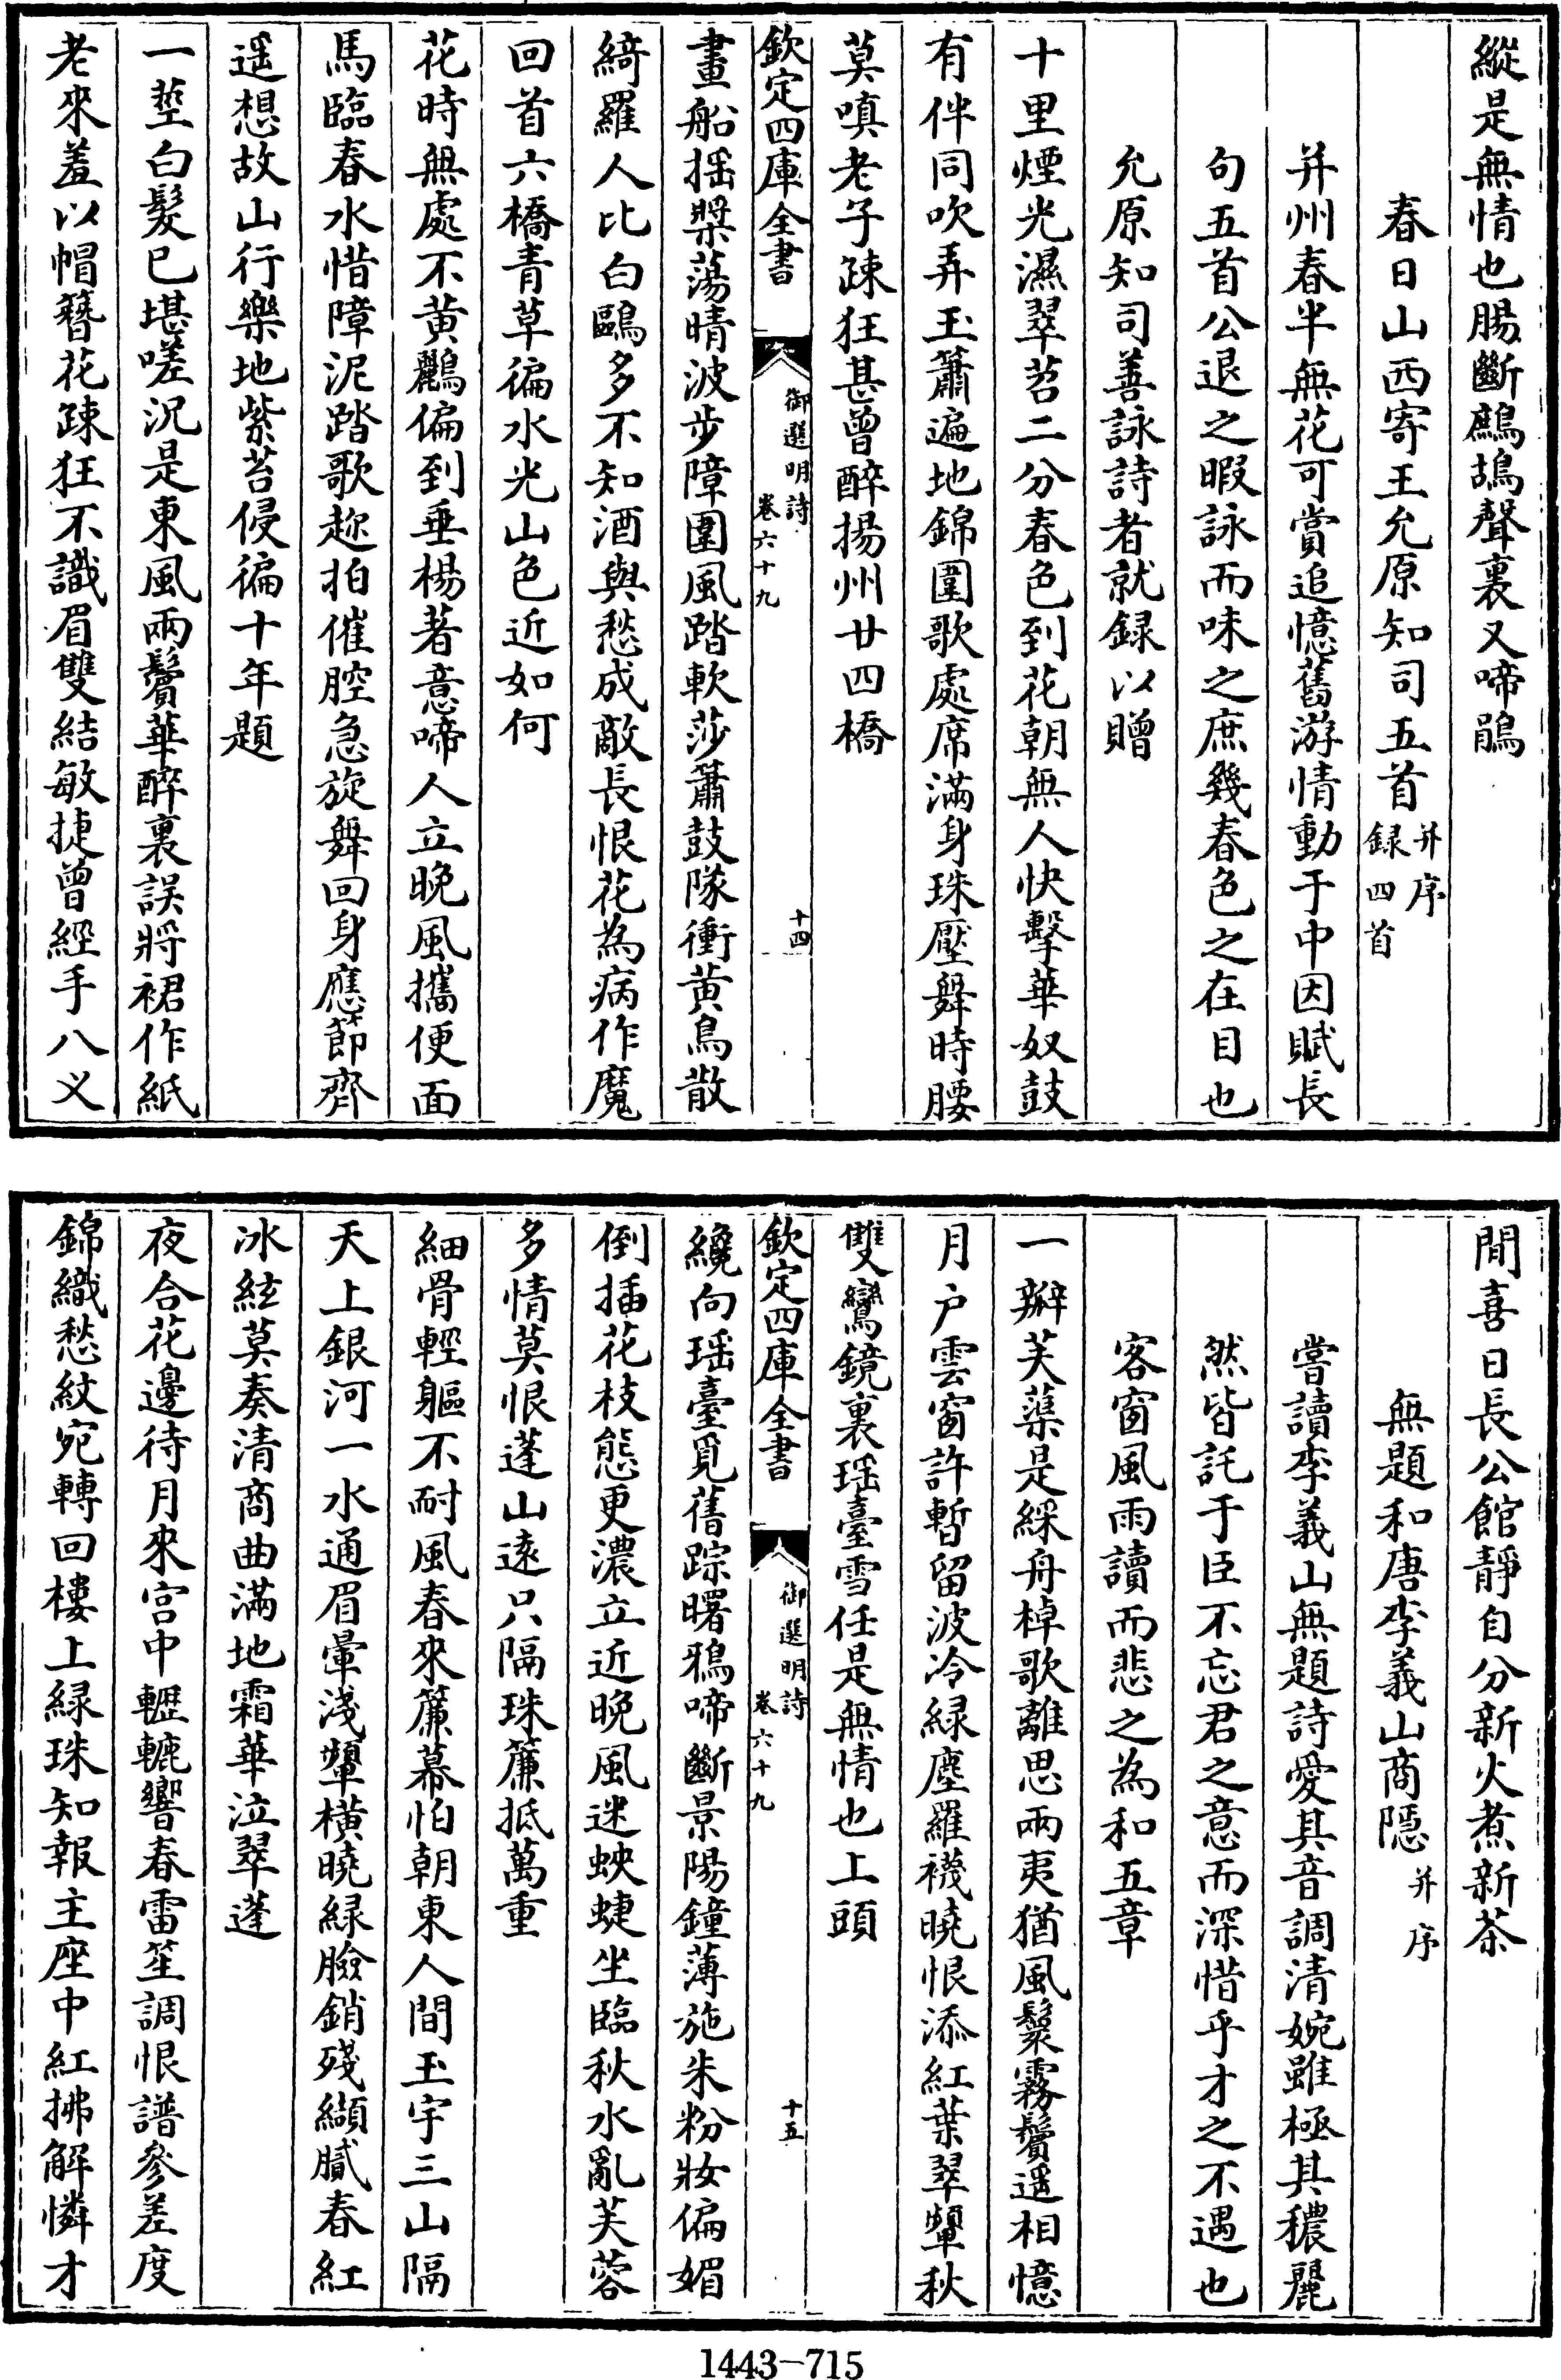 縱是無情也腸斷鷓鴣聲裏又啼鵑
春日山西寄王允原知司五首并序録四首
并州春半無花可賞追憶舊游情動于中因賦長
句五首公退之暇詠而味之庶幾春色之在目也
允原知司善詠詩者就録以贈
十里煙光濕翠苕二分春色到花朝無人快擊華奴鼓
有伴同吹弄玉簫遍地錦圍歌處席滿身珠壓舞時腰
莫嗔老子疎狂甚曾醉揚州廿四橋
欽定四庫全書
御選明詩
卷六十九
十四
畫船揺槳蕩晴波步障圍風踏軟莎簫鼓隊衝黄鳥散
綺羅人比白鷗多不知酒與愁成敵長恨花為病作魔
回首六橋青草徧水光山色近如何
花時無處不黄鸝偏到垂楊著意啼人立晚風攜便面
馬臨春水惜障泥踏歌趂拍催腔急旋舞回身應節齊
遥想故山行樂地紫苔侵徧十年題
一莖白髮已堪嗟況是東風兩鬢華醉裏誤將裙作紙
老來羞以帽簪花疎狂不識眉雙結敏捷曾經手八义
閒喜日長公館靜自分新火煮新茶
無題和唐李義山商隱并序
嘗讀李義山無題詩愛其音調清婉雖極其穠麗
然皆託于臣不忘君之意而深惜乎才之不遇也
客窗風雨讀而悲之為和五章
一瓣芙蕖是綵舟棹歌離思兩夷猶風鬟霧鬢遥相憶
月户雲窗許暫留波冷緑塵羅襪曉恨添紅葉翠顰秋
雙鸞鏡裏瑶臺雪任是無情也上頭
欽定四庫全書
御選明詩
卷六十九
十五
纔向瑶臺覓舊踪曙鴉啼斷景陽鐘薄施朱粉妝偏媚
倒插花枝態更濃立近晚風迷蛺蝶坐臨秋水亂芙蓉
多情莫恨蓬山遠只隔珠簾抵萬重
細骨輕軀不耐風春來簾幕怕朝東人間玉宇三山隔
天上銀河一水通眉暈淺顰横曉緑臉銷殘纈膩春紅
冰絃莫奏清商曲滿地霜華泣翠蓬
夜合花邊待月來宫中轣轆響春雷笙調恨譜參差度
錦織愁紋宛轉回樓上緑珠知報主座中紅拂解憐才
1443-715